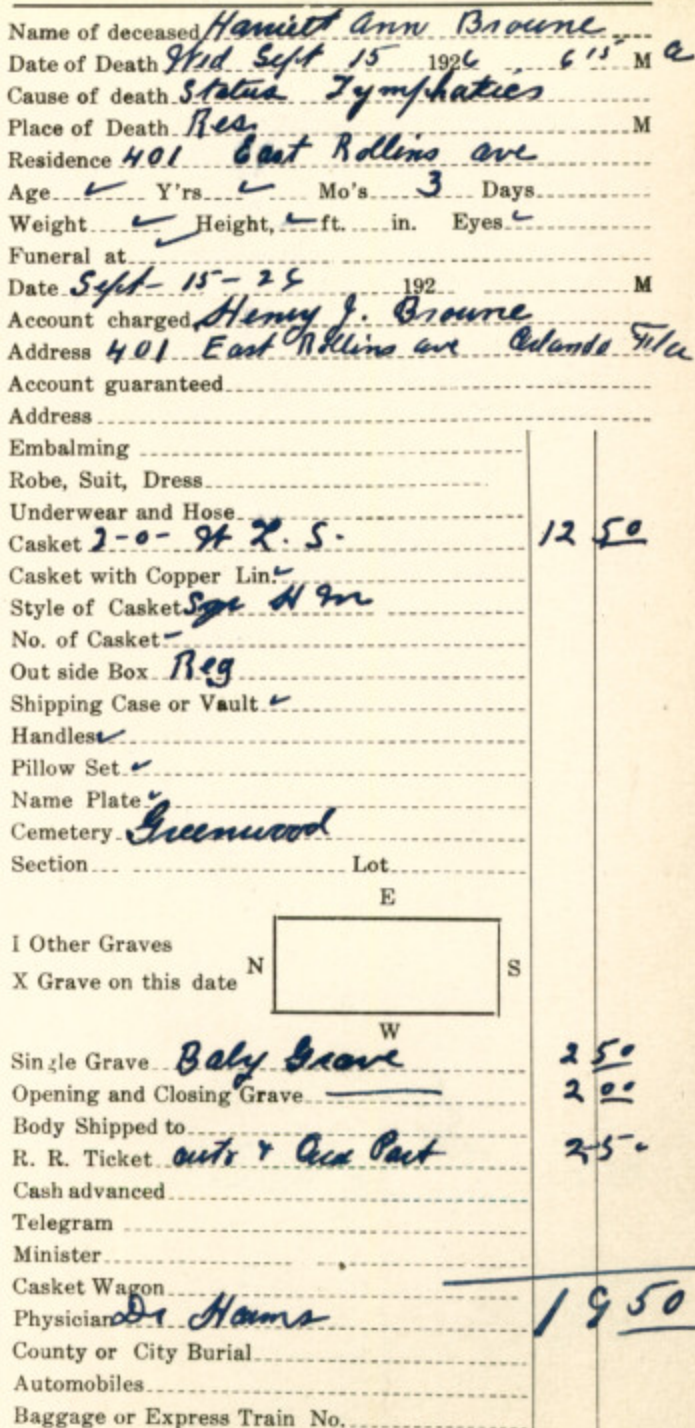 Name of deceased Harriett Ann Browne
Date of Death Wed Sept 15 1926 6 15 M a
Cause of death Status Lymphaticis
Place of Death Res. M
Residence 401 East Rollins ave
Age Y'rs Mo's 3 Days
Weight Height, ft. in. Eyes
Funeral at
Date Sept- 15-26 192 M
Account charged Henry J. Browne
Address 401 East Rollins ave Orlando Fla
Account guaranteed
Address
Embalming
Robe, Suit, Dress
Underwear and Hose
Casket 2-0- S. 12 50
Casket with Copper Lin.
Style of Casket Sqr
No. of Casket -
Out side Box Reg
Shipping Case or Vault
Handles
Pillow Set
Name Plate
Cemetery Greenwood
Section Lot
E
I Other Graves
N S
X Grave on this date
W
Single Grave Baby Grave 2 50
Opening and Closing Grave 2 00
Body Shipped to
R. R. Ticket auto & 2 50
Cash advanced
Telegram
Minister
Casket Wagon
Physician Dr 19 50
County or City Burial
Automobiles
Baggage or Express Train No.